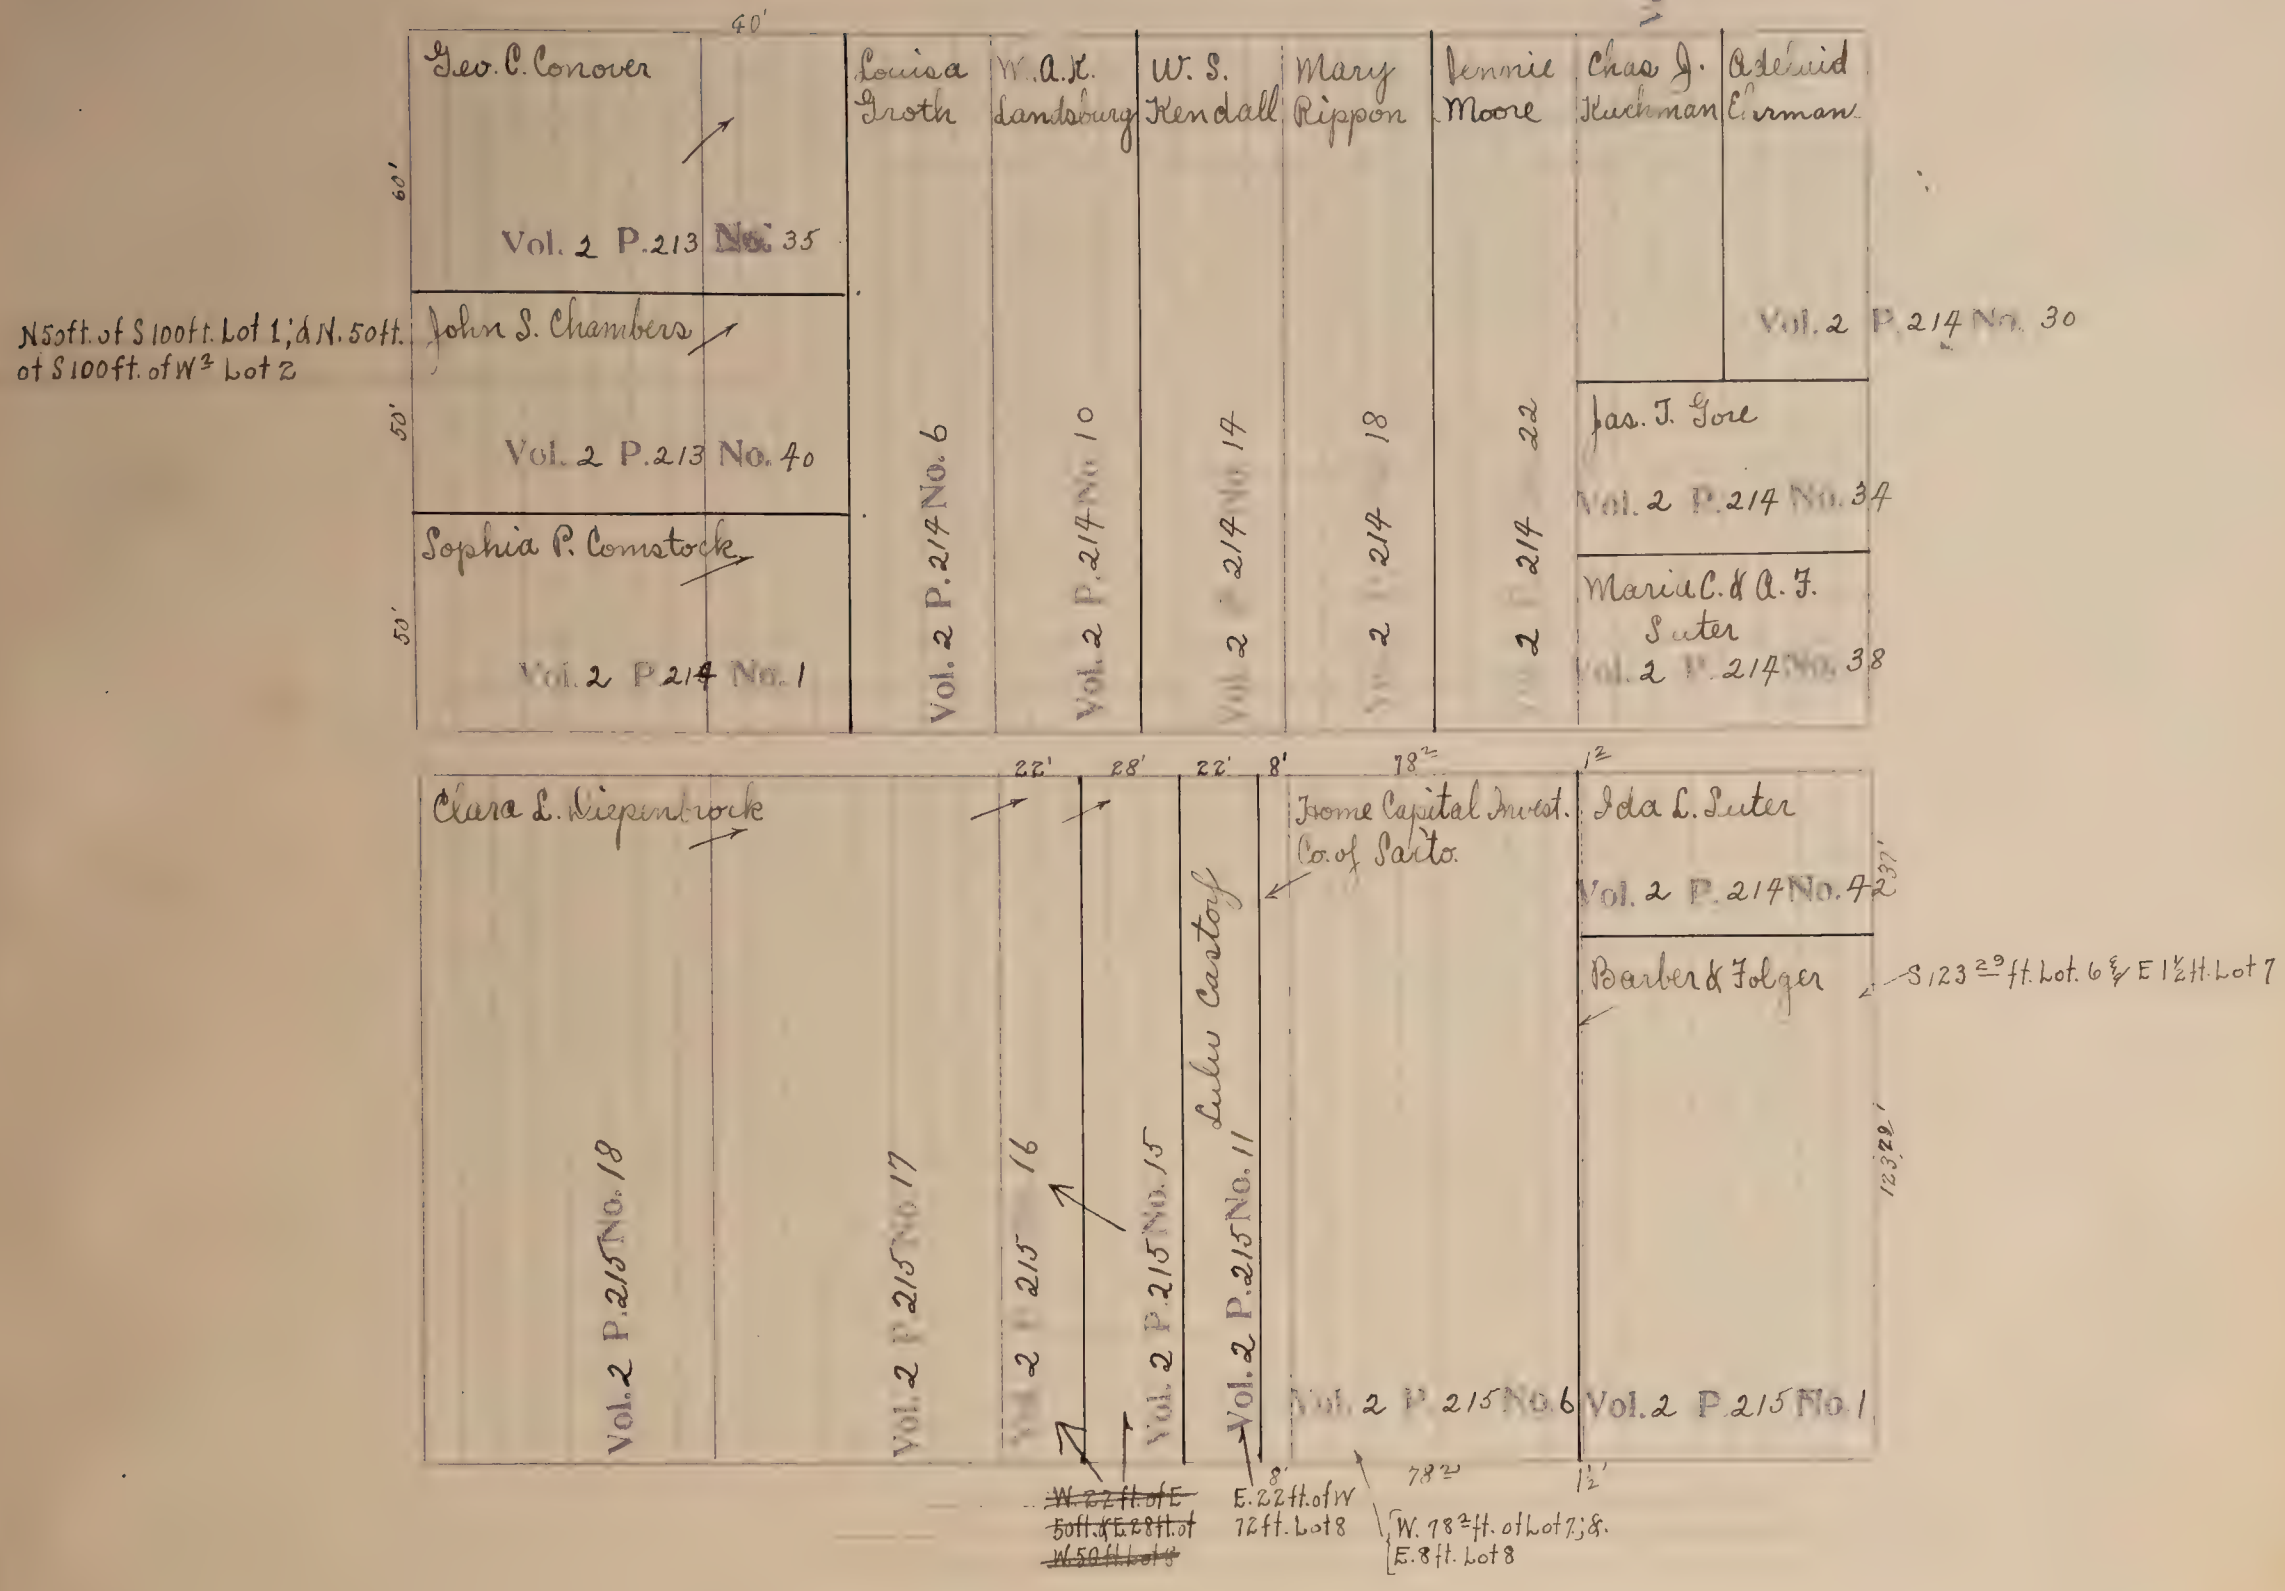 40'
Geo. C. Conover
60'
Vol. 2 P. 213 No. 35
N 50 ft. of S 100 ft. Lot 1; & N. 50 ft.
of S 100 ft. of W 2 Lot 2
John S. Chambers
50'
Vol. 2 P. 213 No. 40
Sophia P. Comstock
50'
Vol. 2 P. 214 No. 1
Louisa
Groth
Vol. 2 P. 214 No. 6
W. A. K.
Landsburg
Vol. 2 P. 214 No. 10
W. S.
Kendall
Vol. 2 P. 214 No. 14
Mary
Rippon
2 P. 214 18
Jennie
Moore
2 P. 214 22
Chas J.
Kuchman
Vol. 2 P. 214 No. 30
Jas. T. Gore
Vol. 2 P. 214 No. 34
Maria C. & A. F.
Suter
Vol. 2 P. 214 No. 38
22' 28' 22' 8' 78 2 1 2
Clara L. Diepenbrock
Vol. 2 P. 215 No. 18
Vol. 2 P. 215 No. 17
2 P 215 16
Vol. 2 P. 215 No. 15
Lulu Castorf
Vol. 2 P. 215 No. 11
Home Capital Invest.
Co. of Sacto.
Vol. 2 P. 215 No. 6
Ida L. Suter
37'
Vol. 2 P. 214 No. 42
Barber & Folger
S 123 29 ft. Lot. 6 & E 1 1/2 ft. Lot 7
123.29'
Vol. 2 P. 215 No. 1
8' 78 2 1 1/2'
W. 22 ft. of E
50 ft. & E. 28 ft. of
W. 50 ft. Lot 8
E. 22 ft. of W
72 ft. Lot 8
W. 78 2 ft. of Lot 7; &.
E. 8 ft. Lot 8